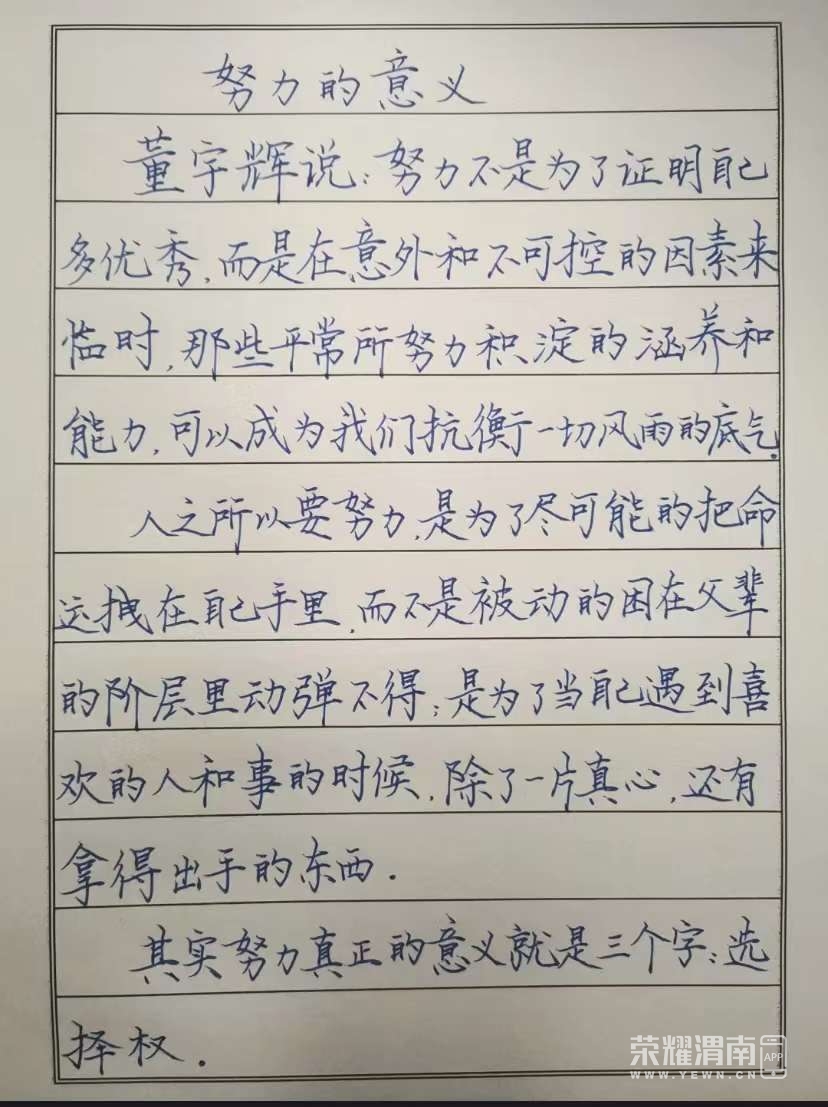 努力的意义
董宇辉说：努力不是为了证明自己
多优秀，而是在意外和不可控的因素来
临时，那些平常所努力积淀的涵养和
能力，可以成为我们抗衡一切风雨的底气.
人之所以要努力，是为了尽可能的把命
运拽在自己手里，而不是被动的困在父辈
的阶层里动弹不得；是为了当自己遇到喜
欢的人和事的时候，除了一片真心，还有
拿得出手的东西.
其实努力真正的意义就是三个字：选
择权.
荣耀渭南 APP
WWW.YEWN.CN